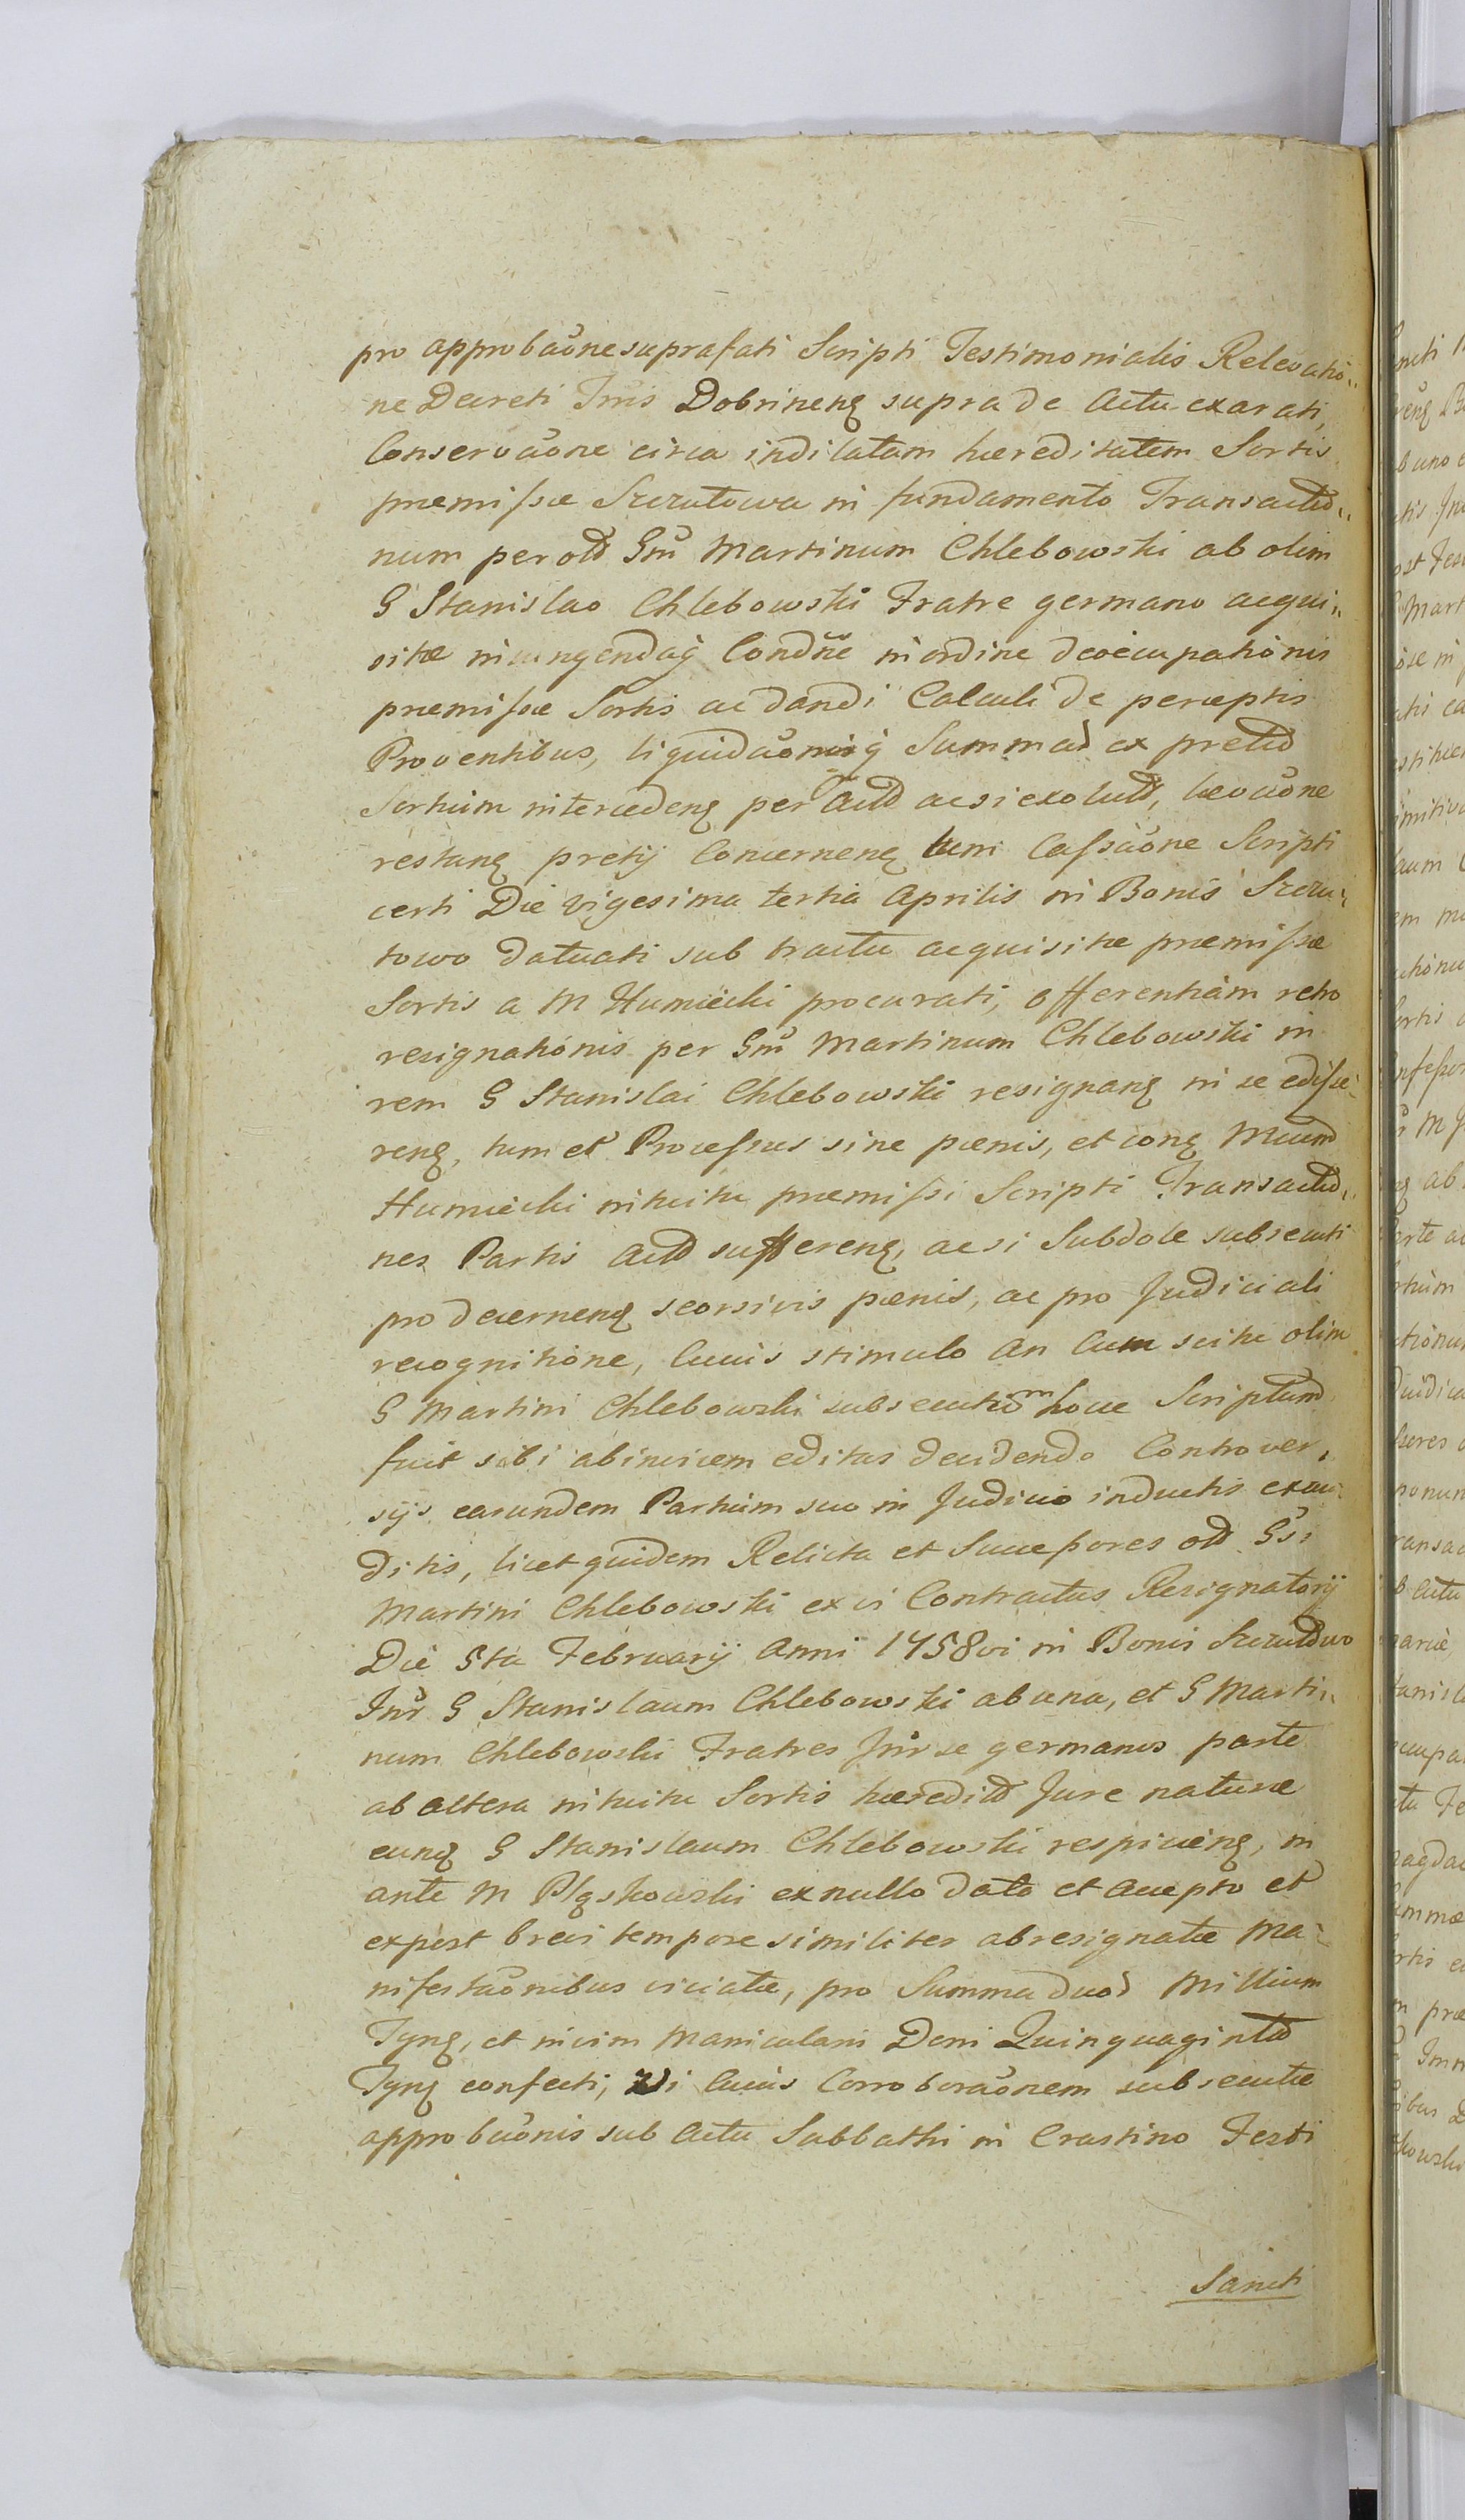 pro approbaōne suprafati Scripti Testimonialis Relevatio„
ne Decreti Trris Dobrinenȩ supra de actu exarati,
Conservaōne circa indilatam hæreditatem Sortis
præmissæ Szczutowa in fundamento Transactio„
num per old Gm̄ Martinum Chlebowski ab olim
G Stanislao Chlebowski Fratre germano acqui„
sitæ iniungendaq̨ Condn̄e in ordine deoccupationis
præmissæ Sortis ac dandi Calculi de perceptis
Proventibus, liquidaōnisq̨ Summar̄ ex pretio
Sortium intercedenȩ per Actor̄ ac si exolut̄, levaōne
restanȩ pretij Concernenȩ tum Cassaōne Scripti
certi Die vigesima tertia Aprilis in Bonis Szczu„
towo datuati sub tractu acquisitæ præmissæ
Sortis a M Humiecki procurati, offerentiam retro
resignationis per Gm̄ Martinum Chlebowski in
rem G Stanislai Chlebowski resignanȩ in se edisse„
renȩ, tum et Processus sine pœnis, et conȩ Mcum
Humiecki intuitu præmissi Scripti Transactio„
nes Partis Act̄ sufferenȩ, ac si Subdole subsecuti
pro decernenȩ seorsivis pœnis, ac pro Judiciali
recognitione, Cuius stimulo an Cum scitu olim
G Martini Chlebowski subsecutum hocce Scriptum
fuit sibi abinvicem editas decidendo Controver„
sijs earundem Partium suo in Judicio inductis exau„
ditis, licet quidem Relicta et Successores old Gsi
Martini Chlebowski ex vi Contractus Resignatorij
Die 5ta Februarij Anni 1758vi in Bonis Szczutowo
Intr̄ G Stanislaum Chlebowski ab una, et G Marti„
num Chlebowski Fratres Intr̄ se germanos parte
ab altera intuitu Sortis hæredit̄ Jure naturæ
eunȩ G Stanislaum Chlebowski respicienȩ, in
ante M Pląskowski ex nullo dato et accepto et
expost brevi tempore similiter abresignatæ Ma„
nifestaōnibus viciatæ, pro Summa duor̄ Millium
Tynȩ, et nivim Manicularii Deni Quinquaginta
Tynȩ confecti, Vi Cuius Corroboraōnem subsecutæ
approbaōnis sub Actu Sabbathi in Crastino Festi
Sancti